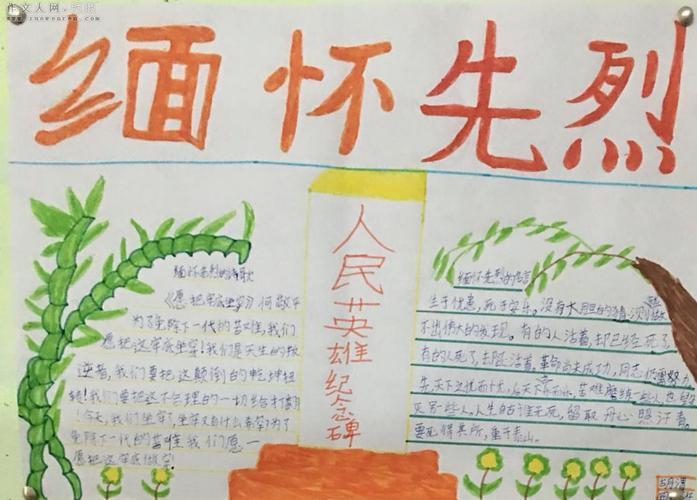 作文人网
www.zuowenren.com
缅怀先烈
人民英雄纪念碑
缅怀先烈的诗歌
《愿把牢底坐穿》何敬平
为了免除下一代的苦难,我们
愿把这牢底坐穿!我们是天生的叛
逆者,我们要把这颠倒的乾坤扭
转!我们要把这不合理的一切给打翻
!今天,我们坐牢了,坐牢又有什么希罕?为了
免除下一代的苦难我们愿一
愿把这牢底做穿
缅怀先烈的名言
生于忧患,死于安乐。没有大胆的猜测,就做
不出伟大的发现。有的人活着,却已经死了,
有的人死了却还活着。革命尚未成功,同志仍需努力
先天下之忧而忧,后天下之乐而乐。苦难磨练一些人,也
灭另一些人。人生自古谁无死,留取丹心照汗青。
要死得其所,重于泰山。